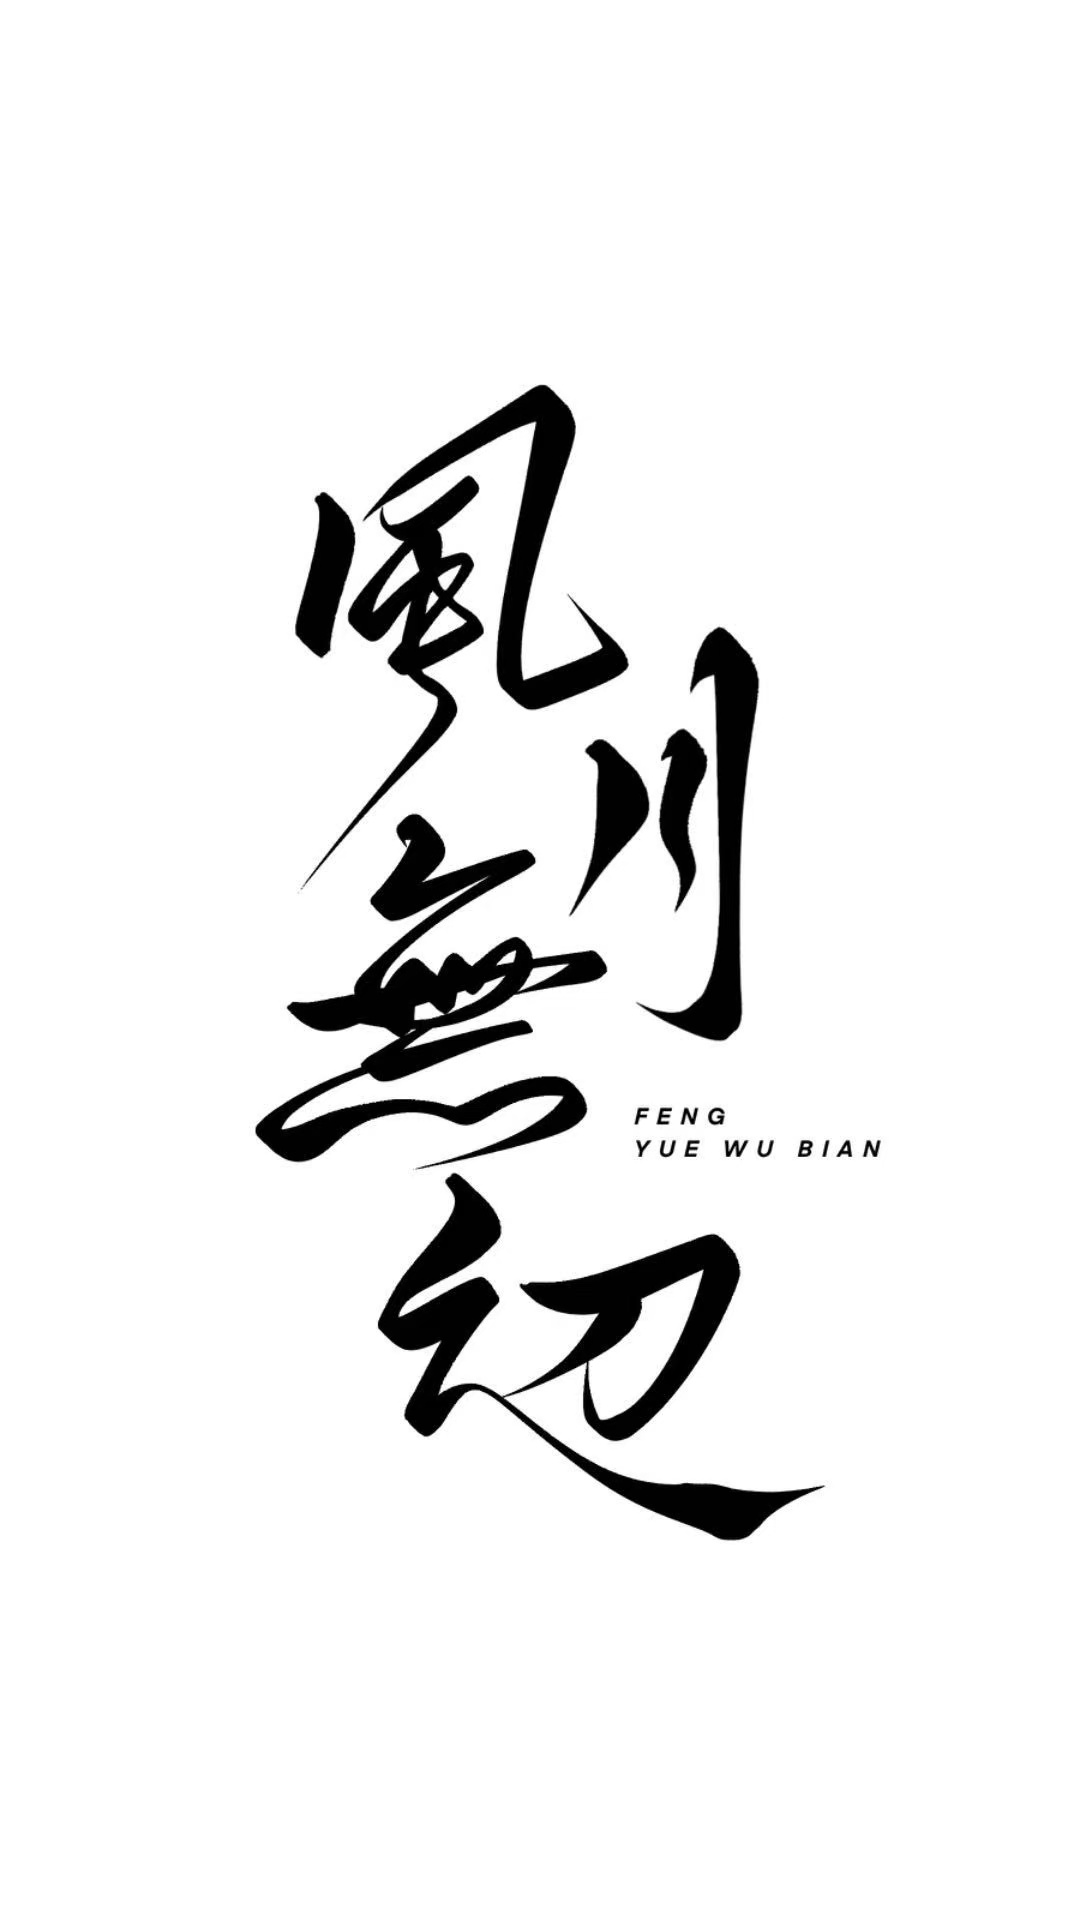 風月無边
FENG
YUE WU BIAN